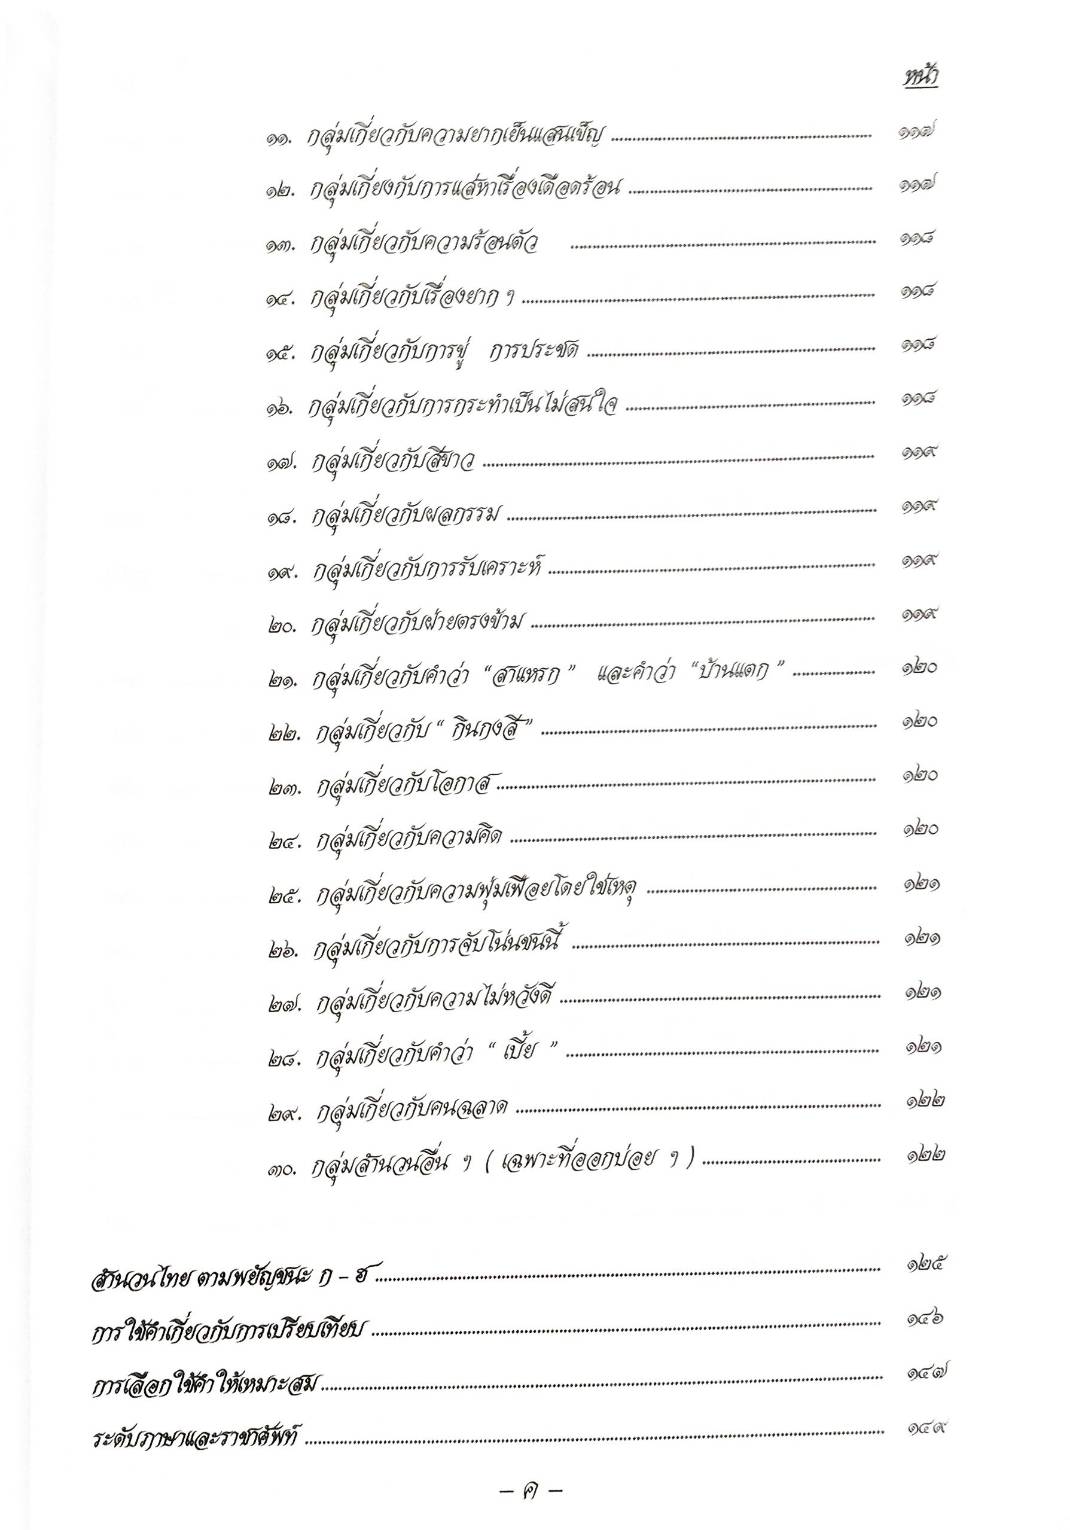 หน้า
๑๑. กลุ่มเกี่ยวกับความยากเย็นแสนเข็ญ ........................ ๑๑๗
๑๒. กลุ่มเกี่ยงกับการแส่หาเรื่องเดือดร้อน ........................ ๑๑๗
๑๓. กลุ่มเกี่ยวกับความร้อนตัว ........................ ๑๑๘
๑๔. กลุ่มเกี่ยวกับเรื่องยาก ๆ ........................ ๑๑๘
๑๕. กลุ่มเกี่ยวกับการขู่ การประชด ........................ ๑๑๘
๑๖. กลุ่มเกี่ยวกับการกระทำเป็นไม่สนใจ ........................ ๑๑๘
๑๗. กลุ่มเกี่ยวกับสีขาว ........................ ๑๑๙
๑๘. กลุ่มเกี่ยวกับผลกรรม ........................ ๑๑๙
๑๙. กลุ่มเกี่ยวกับการรับเคราะห์ ........................ ๑๑๙
๒๐. กลุ่มเกี่ยวกับฝ่ายตรงข้าม ........................ ๑๑๙
๒๑. กลุ่มเกี่ยวกับคำว่า “สาแหรก” และคำว่า “บ้านแตก” ........................ ๑๒๐
๒๒. กลุ่มเกี่ยวกับ “ กินกงสี” ........................ ๑๒๐
๒๓. กลุ่มเกี่ยวกับโอกาส ........................ ๑๒๐
๒๔. กลุ่มเกี่ยวกับความคิด ........................ ๑๒๐
๒๕. กลุ่มเกี่ยวกับความฟุ่มเฟือยโดยใช่เหตุ ........................ ๑๒๑
๒๖. กลุ่มเกี่ยวกับการจับโน่นชนนี้ ........................ ๑๒๑
๒๗. กลุ่มเกี่ยวกับความไม่หวังดี ........................ ๑๒๑
๒๘. กลุ่มเกี่ยวกับคำว่า “ เบี้ย ” ........................ ๑๒๑
๒๙. กลุ่มเกี่ยวกับคนฉลาด ........................ ๑๒๒
๓๐. กลุ่มสำนวนอื่น ๆ ( เฉพาะที่ออกบ่อย ๆ ) ........................ ๑๒๒
สำนวนไทย ตามพยัญชนะ ก – ฮ ........................ ๑๒๕
การใช้คำเกี่ยวกับการเปรียบเทียบ ........................ ๑๔๖
การเลือกใช้คำให้เหมาะสม ........................ ๑๔๗
ระดับภาษาและราชาศัพท์ ........................ ๑๔๙
– ค –